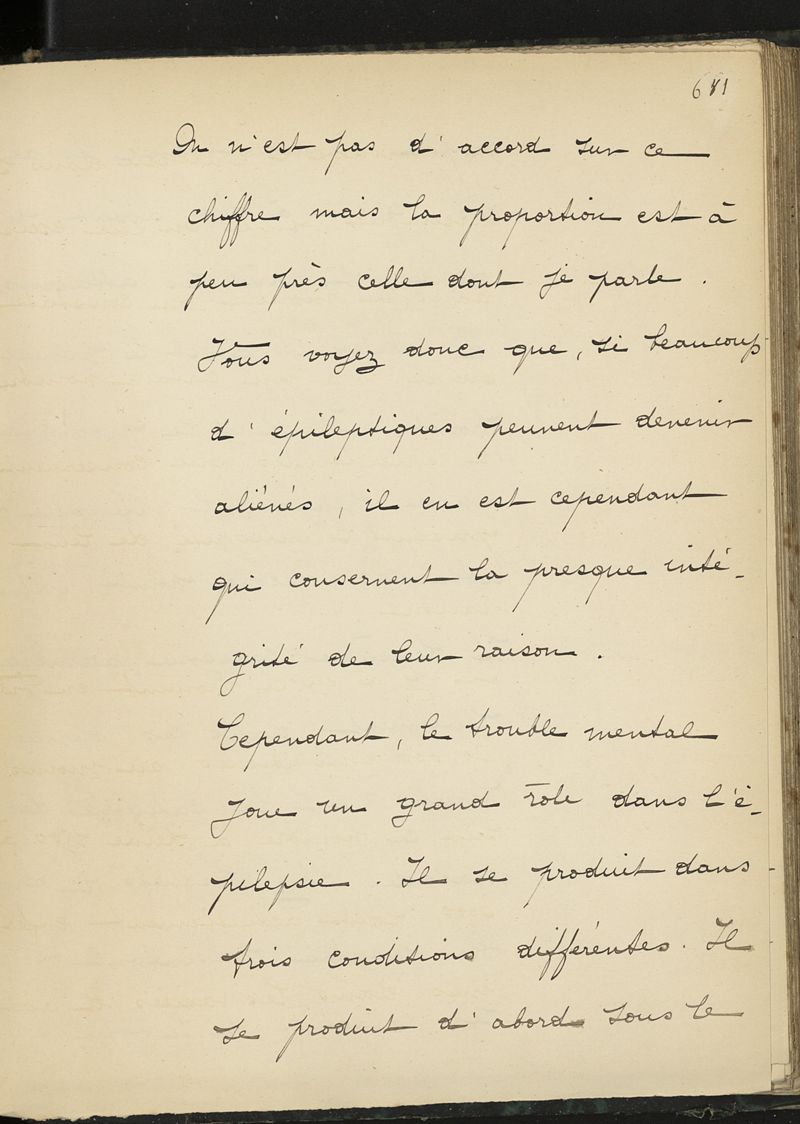 681
On n'est pas d'accord sur ce
chiffre mais la proportion est à
peu près celle dont je parle.
Vous voyez donc que, si beaucoup
d'épileptiques peuvent devenir
aliénés, il en est cependant
qui conservent la presque inté-
grité de leur raison.
Cependant, le trouble mental
joue un grand role dans l'é-
pilepsie. Il se produit dans
trois conditions différentes. Il
se produit d'abord sous le